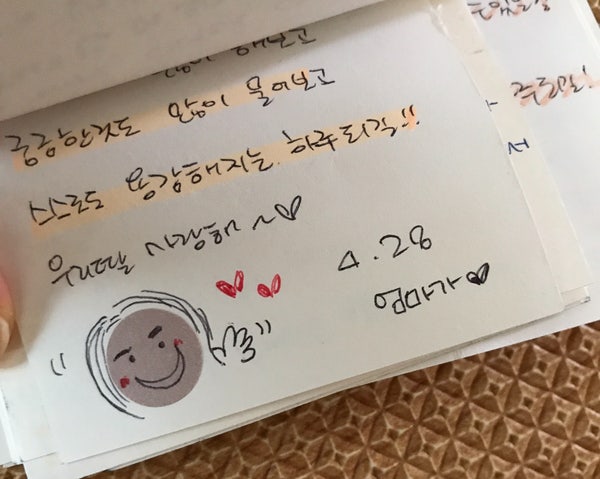 많이 해보고
궁금한것도 많이 물어보고
스스로도 용감해지는 하루되길!!
우리딸 사랑해~♡
4.28
엄마가♥